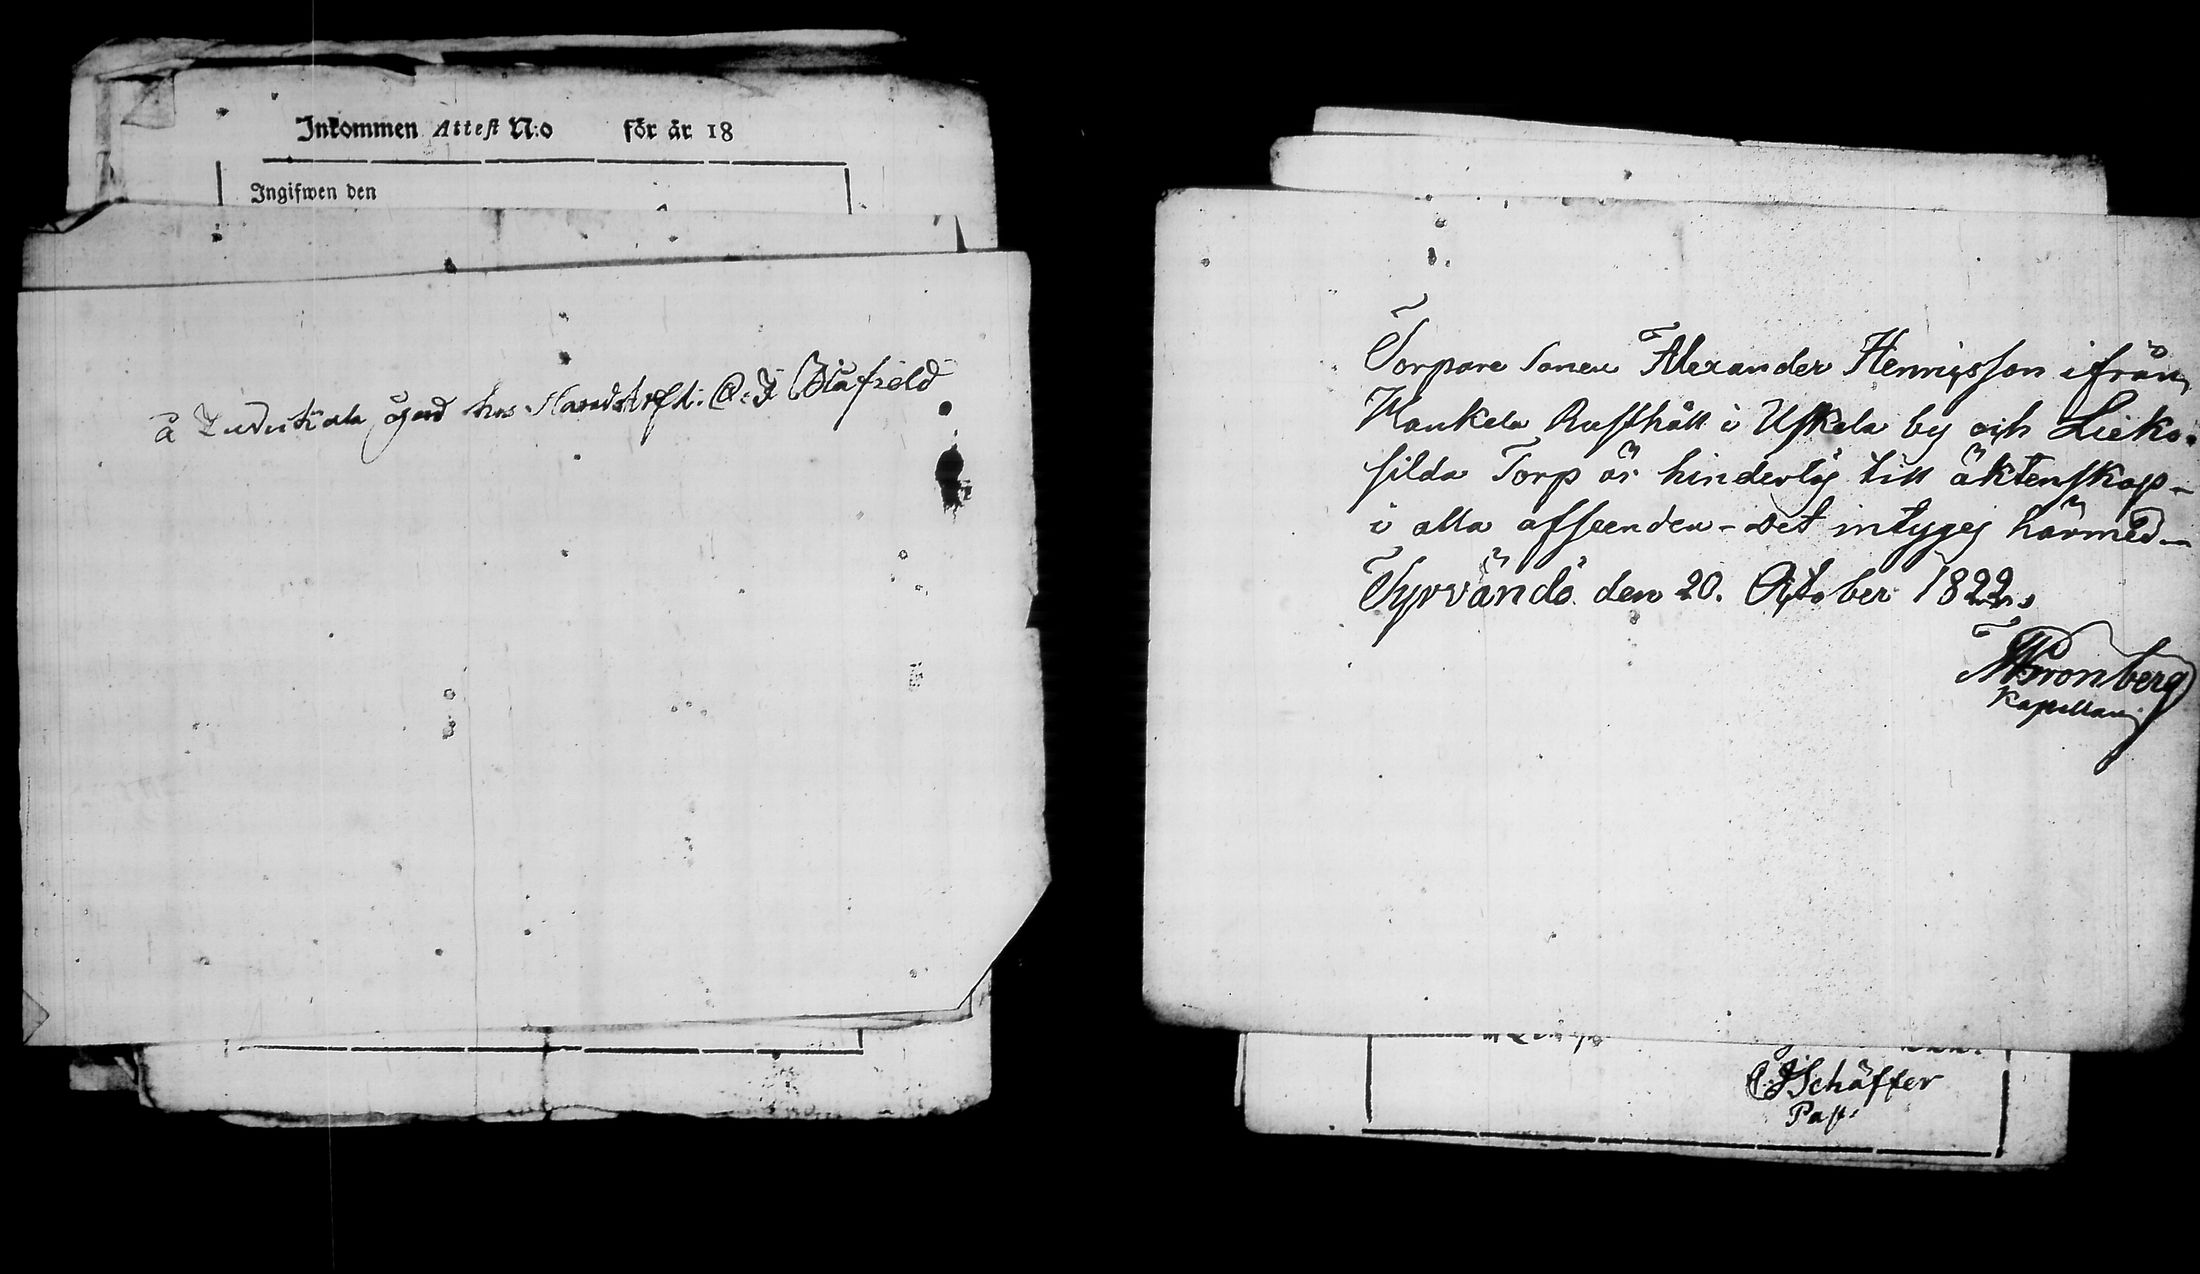 Inkommen Attest N:o för år 18
Ingifwen den
å gård hos O: F Blåfield
Torpare Sonen Alexander Henrigsson ifrån
Kaukela Rusthåll i Uskela by och Lieko-
silda Torp är hinderlös till äktenskap-
i alla afseenden - det intygas härmed-
Tyrvändö den 20. October 1822.
Kronberg
Kapellan
C.J Schäffer
Past.